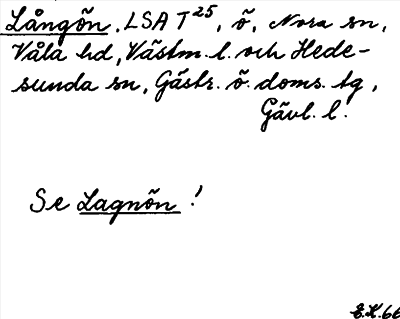 Långõn. LSA T²⁵, õ, Nora sn,
Våla hd, Västm. l. och Hede-
sunda sn, Gästr. õ. doms. tg,
Gävl. l.
Se Lagnõn!
E.K. 66